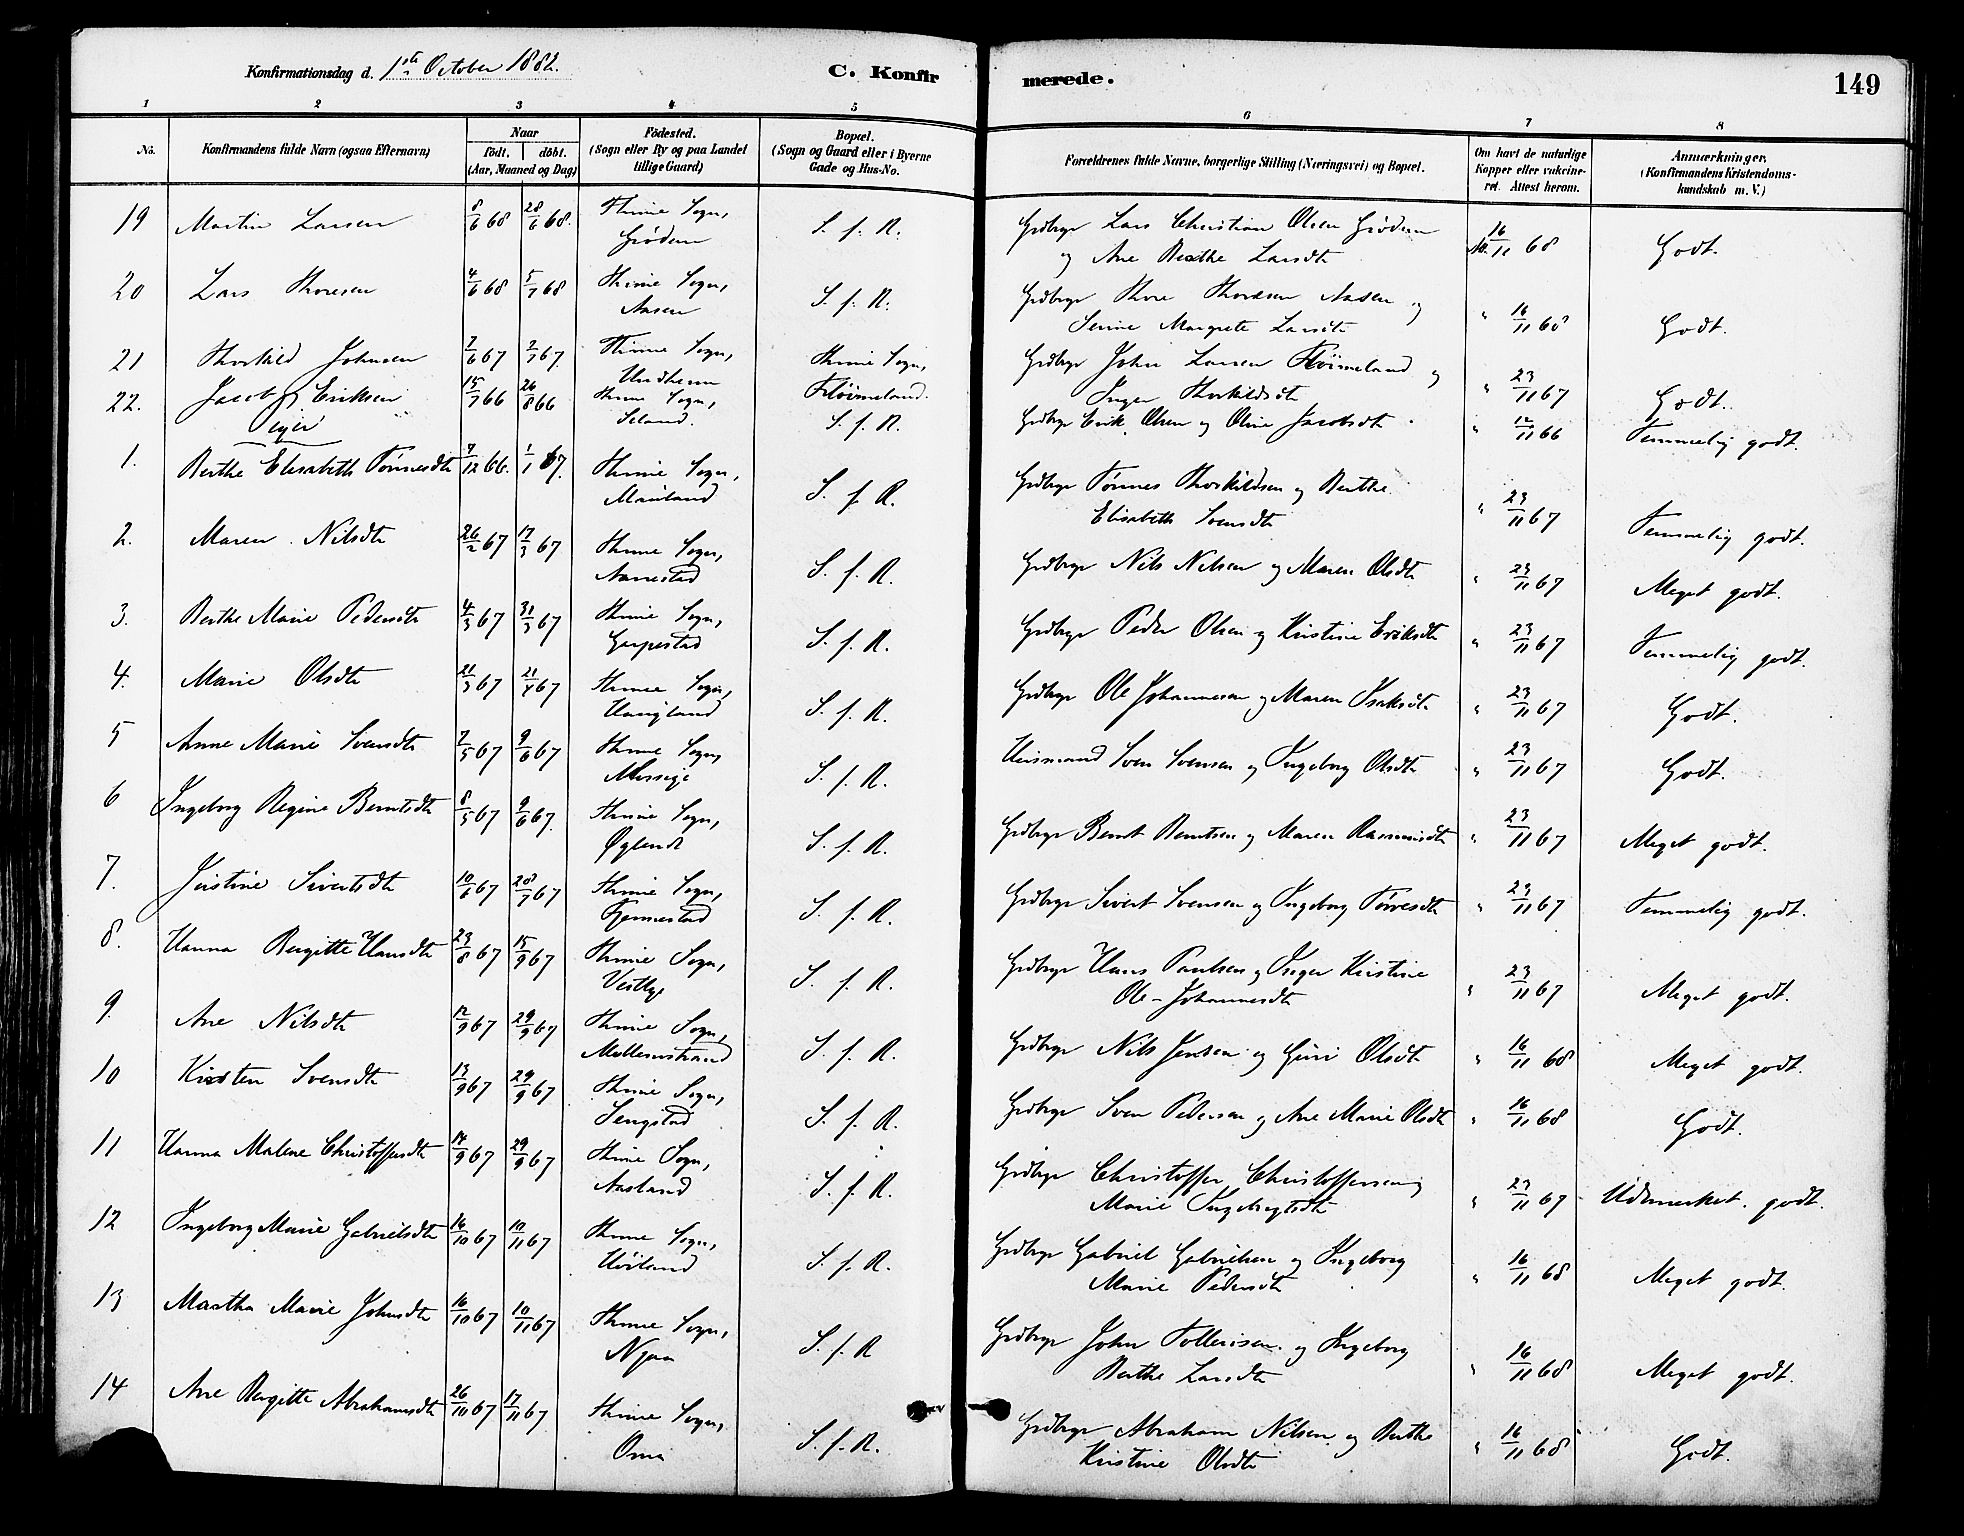 Konfirmationsdag d. 1ste October 1882.
C. Konfirmerede.
149
1 2 3 4 5 6 7 8
No.
Konfirmandens fulde Navn (ogsaa Efternavn)
Naar
födt. döbt.
(Aar, Maaned og Dag)
Födested.
(Sogn eller By og paa Landet
tillige Gaard)
Bopæl.
(Sogn og Gaard eller i Byerne
Gade og Hus-No.
Forældrenes fulde Navne, borgerlige Stilling (Næringsvei) og Bopæl.
Om havt de naturlige
Kopper eller vakcine-
ret. Attest herom.
Anmærkninger.
(Konfirmandens Kristendoms-
kundskab m. V.)
19 Martin Larsen 8/6 68 28/6 68. Thime Sogn, S. f. R. Grdbrgr Lars Christian Olsen Grödem 16/11 68 Godt.
Grödem og Ane Berthe Larsdt
20 Lars Thoresen 4/6 68 5/7 68 Thime Sogn, S. f. R. Grdbrgr Thore Thoresen Aasen og " 16/11 68 Godt.
Aasen Serine Margrete Larsdt
21 Thorkild Johnsen 2/6 67 2/7 67. Thime Sogn, Thime Sogn, Grdbrgr John Larsen Flöimeland og " 23/11 67 Godt.
Undheim Flöimeland. Inger Thorkildsdt
22. Jacob Eriksen 15/7 66 26/8 66 Thime Sogn, S. f. R. Grdbrgr Erik Olsen og Oline Jacobsdt " 12/11 66 Temmelig godt.
Seland.
Piger
1. Berthe Elisabeth Tönnesdt 7/12 66. 1/1 67. Thime Sogn, S. f. R. Grdbrgr Tönnes Thorkildsen og Berthe " 23/11 67 Temmelig godt.
Mauland Elisabeth Svendsdt
2. Maren Nilsdt 26/2 67 17/3 67 Thime Sogn, S. f. R. Grdbrgr Nils Nilsen og Maren Olsdt " 23/11 67 Meget godt.
Aanestad
3. Berthe Marie Pedersdt 4/3 67 31/3 67 Thime Sogn, S. f. R. Grdbrgr Peder Olsen og Kristine Eriksdt " 23/11 67 Temmelig godt.
Garpestad
4. Marie Olsdt 21/3 67 21/4 67 Thime Sogn, S. f. R. Grdbrgr Ole Johannesen og Maren Isaksdt " 23/11 67 Godt.
Haugland
5 Anne Marie Svensdt 7/5 67 9/6 67 Thime Sogn, S. f. R. Husmand Sven Svensen og Ingeborg Olsdt " 23/11 67 Godt.
Mossige
6 Ingeborg Regine Berntsdt 8/5 67 9/6 67. Thime Sogn, S. f. R. Grdbrgr Bernt Berntsen og Maren Rasmusdt " 23/11 67 Meget godt.
Øglend
7. Justine Sivertsdt 10/6 67 28/7 67 Thime Sogn, S. f. R. Grdbrgr Sivert Svensen og Ingeborg Torresdt " 23/11 67 Temmelig godt.
8. Hanna Bergitte Hansdt 23/8 67 15/9 67 Thime Sogn, S. f. R. Grdbrgr Hans Paulsen og Inger Kristine " 23/11 67 Meget godt.
Vestlye Ole-Johannesdt
9. Ane Nilsdt 12/9 67 29/9 67 Thime Sogn, S. f. R. Grdbrgr Nils Jensen og Guri Olsdt " 16/11 68 Meget godt.
10 Kirsten Svensdt 13/9 67 29/9 67 Thime Sogn, S. f. R. Grdbrgr Sven Pedersen og Ane Marie Olsdt " 16/11 68 Godt.
11 Hanna Malene Christoffersdt 14/9 67 29/9 67 Thime Sogn, S. f. R. Grdbrgr Christoffer Christoffersen og " 23/11 67 Udmerket godt.
Aasland Marie Ingebrigtsdt
12 Ingeborg Marie Gabrielsdt 16/10 67 10/11 67 Thime Sogn, S. f. R. Grdbrgr Gabriel Gabrielsen og Ingeborg " 16/11 68 Meget godt.
Höiland Marie Pedersdt
13 Martha Marie Johnsdt 16/10 67 10/11 67 Thime Sogn, S. f. R Grdbrgr John Tollevsen og Ingeborg " 16/11 68 Meget godt.
Njaa Berthe Larsdt
14 Ane Bergitte Abrahamsdt 26/10 67 17/11 67 Thime Sogn, S. f. R. Grdbrgr Abraham Nilsen og Berthe " 16/11 68 Godt.
Oma Kristine Olsdt